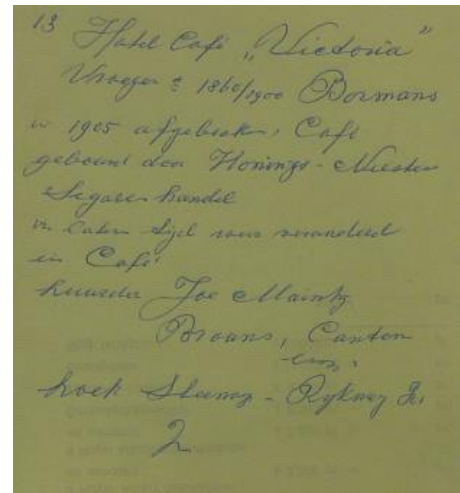 13 Hotel Café „Victoria"
Vroeger ± 1860/1900 Bormans
in 1905 afgebroken, Café
gebouwd door Honings-
Segaren handel
in later tijd weer veranderd
in Café
huurder Joe Maintz
Broans, Canton
enz.
hoek Steenweg - Rykweg
2